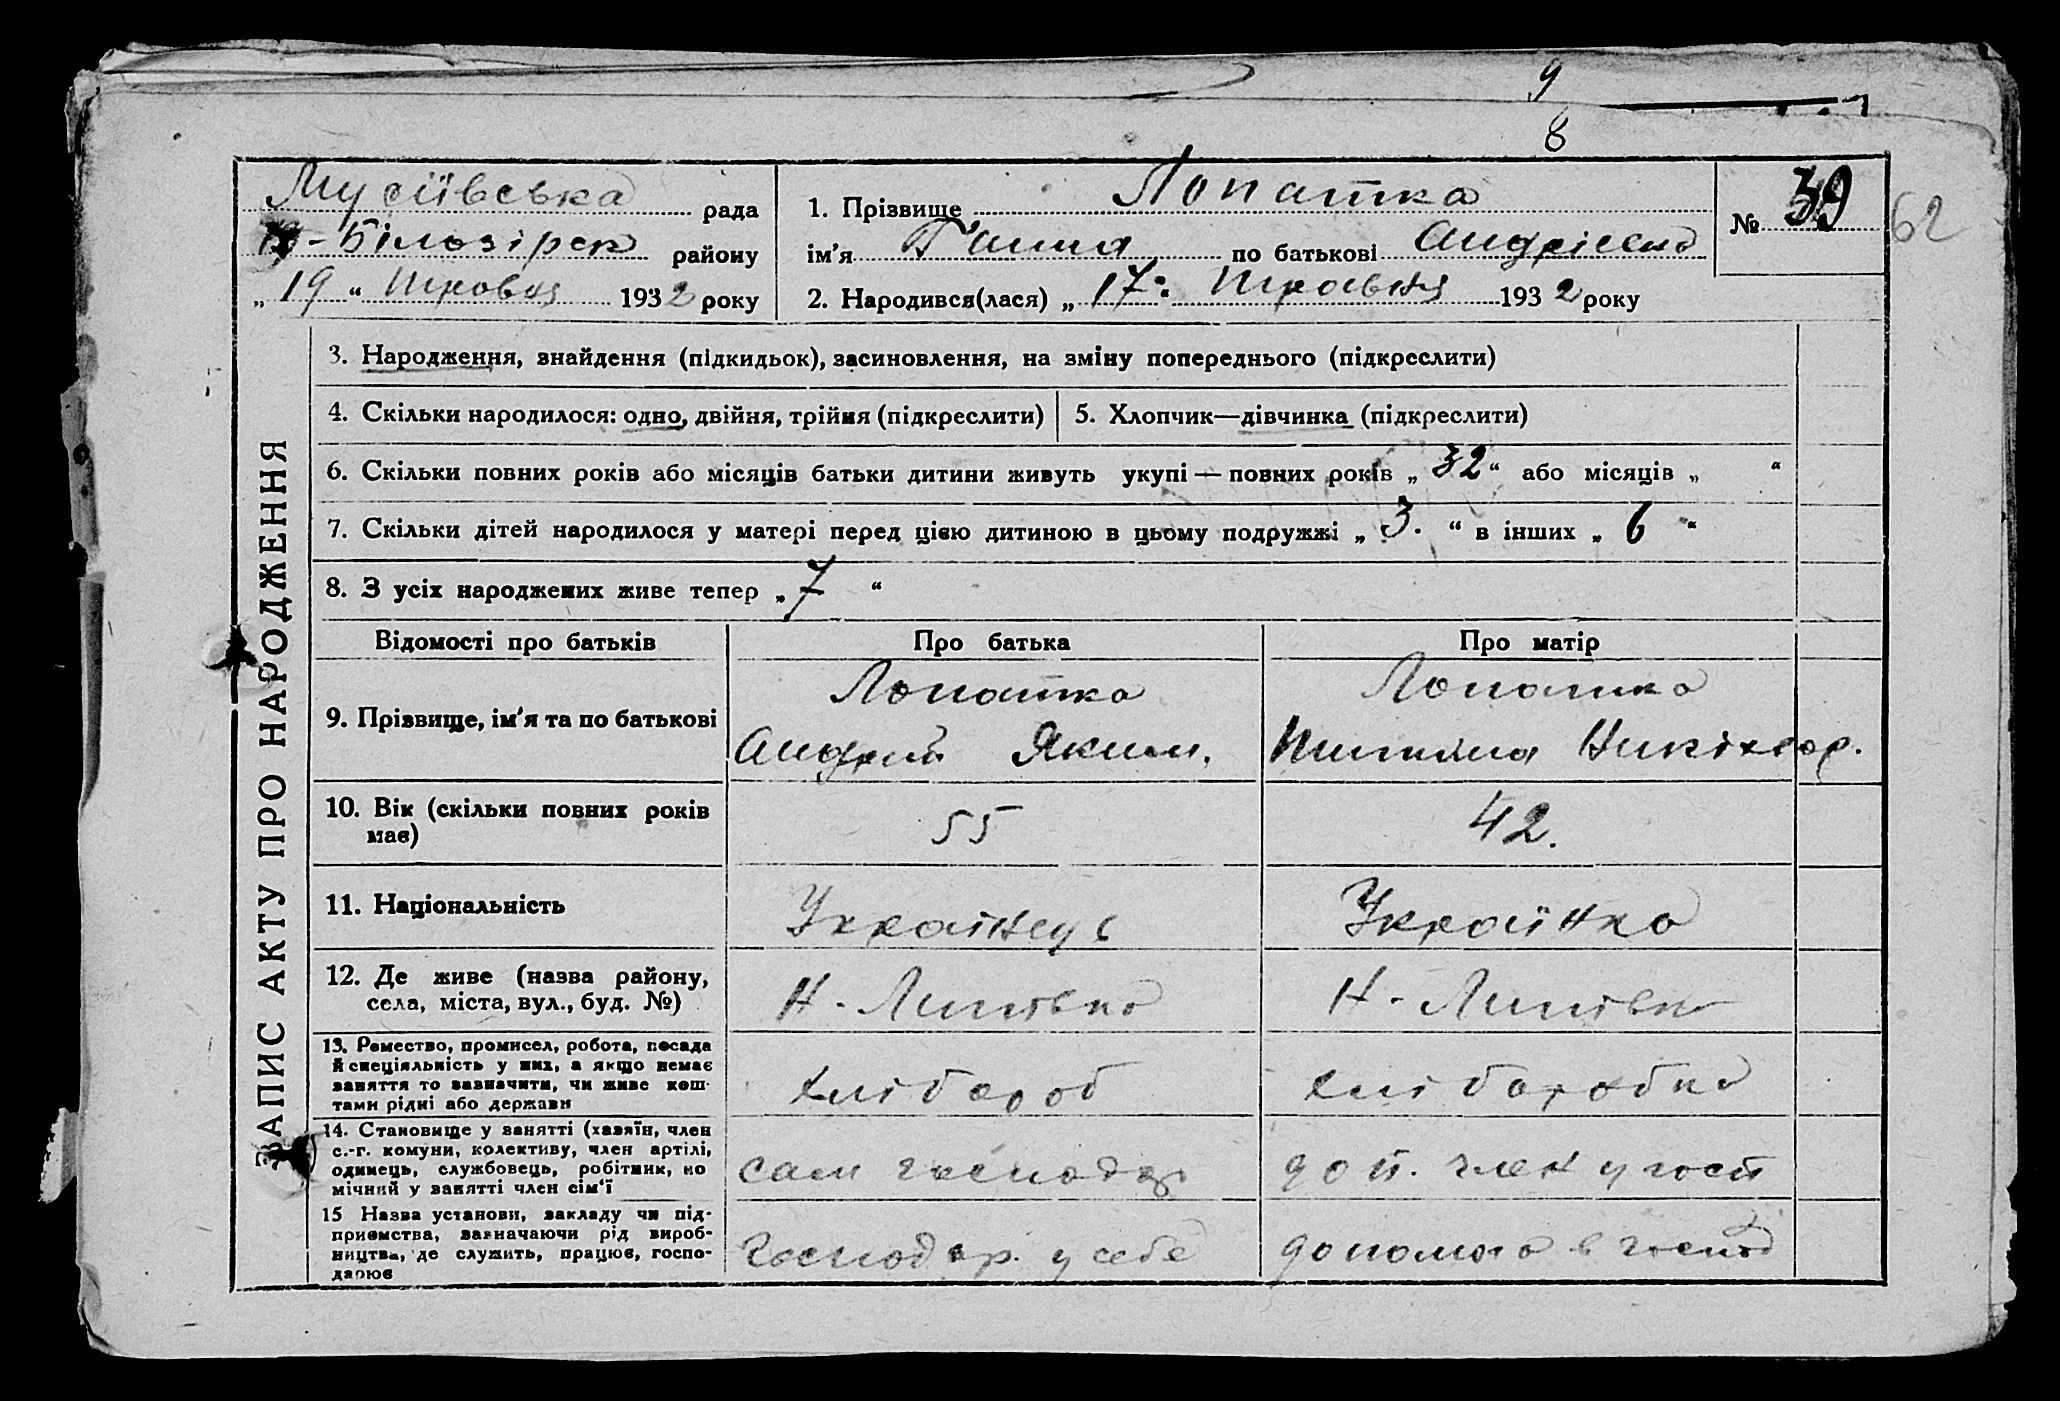 9
8
Мусіївська рада
В-Білозірск району
„ 19 “ Травня 1932 року
1. Прізвище Лопатка
ім'я Ганна по батькові Андріевна
2. Народився(лася) „ 17 “ Травня 1932 року
№ 39
62
ЗАПИС АКТУ ПРО НАРОДЖЕННЯ
3. Народження, знайдення (підкидьок), засиновлення, на зміну попереднього (підкреслити)
4. Скільки народилося: одно, двійня, трійня (підкреслити)
5. Хлопчик—дівчинка (підкреслити)
6. Скільки повних років або місяців батьки дитини живуть укупі — повних років „ 32 “ або місяців „ “
7. Скільки дітей народилося у матері перед цією дитиною в цьому подружжі „ 3. “ в інших „ 6 “
8. З усіх народжених живе тепер „ 7 “
Відомості про батьків
Про батька
Про матір
9. Прізвище, ім'я та по батькові
Лопатка
Андрий Яким.
Лопатка
Никіхвор.
10. Вік (скільки повних років
має)
55
42.
11. Національність
Українець
Українка
12. Де живе (назва району,
села, міста, вул., буд. №)
Н-Липівка
Н-Липівка
13. Ремество, промисел, робота, посада
й спеціяльність у них, а якщо немає
заняття то зазначити, чи живе кош-
тами рідні або держави
хлібороб
хліборобка
14. Становище у занятті (хазяїн, член
с.-г. комуни, колективу, член артілі,
одинець, службовець, робітник, по
мічний у занятті член сім'ї
сам господар
доп. член у госп
15 Назва установи, закладу чи під-
приємства, зазначаючи рід вироб-
ництва, де служить, працює, госпо-
дарює
Господар. у себе
допомога в господ